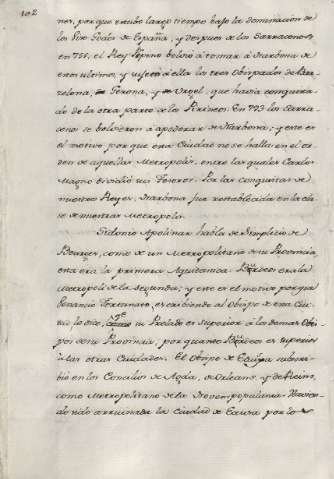 102
nes, porque estubo largo tiempo bajo la dominacion de
los Viso Godos de España, y despues de los Sarracenos;
en 755, el Rey Pipino bolvió á tomar á Narbona de
estos ultimos, y sujetó á ella los tres Obispados de Bar-
celona, Gerona, y Urgel, que havia conquista-
do de la otra parte de los Pirineos. En 793 los Sarra-
cenos se bolvieron á apoderar de Narbona; y este es
el motivo por que esta Ciudad no se halla en el or-
den de aquellas Metropolis, entre las quales Carlos
Magno dividió sus Tesoros. Por las conquistas de
nuestros Reyes, Narbona fue restablecida en la cla-
se de nuestras Metropolis.
Sidonio Apolinar habla de Simplicio de
Bourges, como de un Metropolitano de su Provincia,
esta era la primera Aquitanica. Burdeos era la
Metropoli de la segunda; y este es el motivo por que
Venancio Fortunato, escribiendo al Obispo de esta Ciu-
dad lo dice, que su Prelado es superior á los demas Obis-
pos de su Provincia, por quanto Burdeos es superior
á las otras Ciudades. El Obispo de Eausa subscri-
bió en los Concilios de Agda, de Orleans, y de
como Metropolitano de la Novempopulania. Havien-
do sido arruinada la Ciudad de Eausa por los